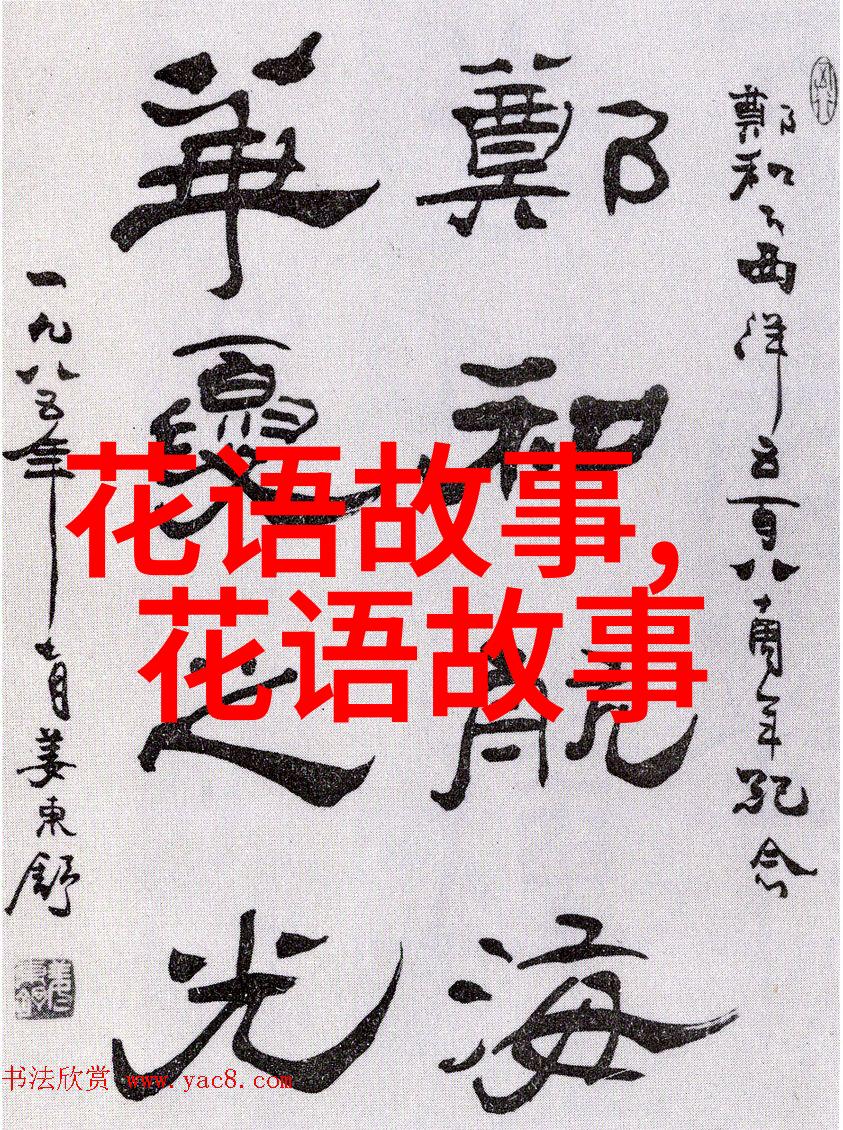 鄭和下西洋五百八十周年紀念
鄭和航海
華夏之光
一九八五年七月姜東舒
花语故事,
花语故事
书法欣赏 www.yac8.com